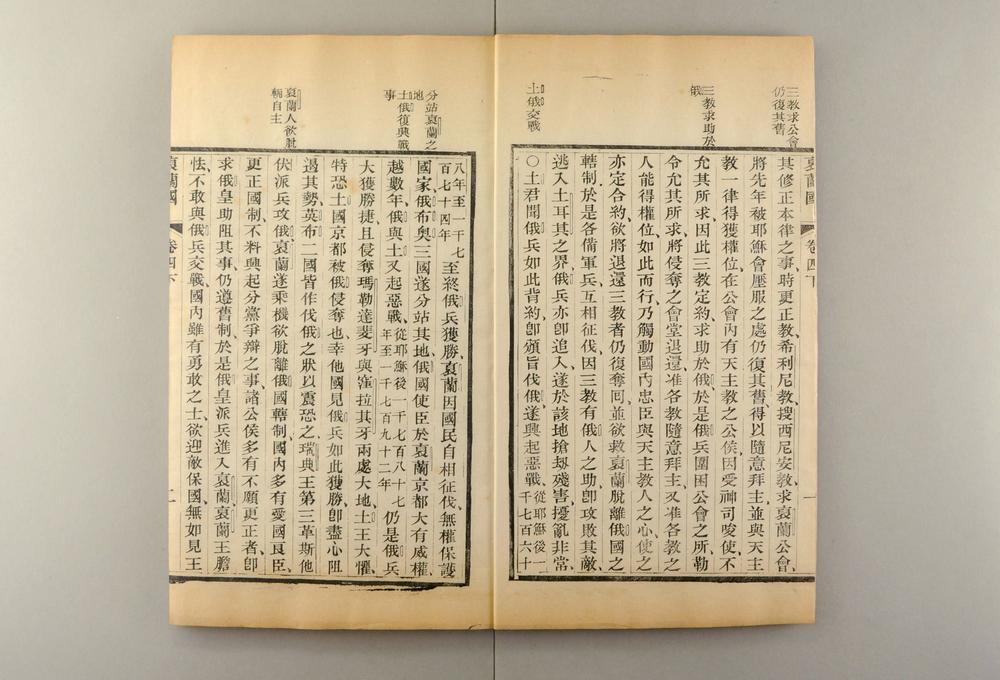 三教求公會
仍復其舊
三教求助於
俄
土俄交戰
哀蘭國
卷四下
一
其修正本律之事時更正教希利尼教搜西尼安教求哀蘭公會
將先年被耶穌會壓服之處仍復其舊得以隨意拜主並與天主
教一律得獲權位在公會內有天主教之公侯因愛神司唆使不
允其所求因此三教定約求助於俄於是俄兵圍困公會之所勒
令允其所求將侵奪之會堂退還准各教隨意拜主又准各教之
人能得權位如此而行乃觸動國內忠臣與天主教人之心使之
亦定合約欲將退還三教者仍復奪回並欲救哀蘭脫離俄國之
轄制於是各備軍兵互相征伐因三教有俄人之助卽攻敗其敵
逃入土耳其之界俄兵亦卽追入遂於該地搶刼殘害擾亂非常
○土君聞俄兵如此背約卽頒旨伐俄遂興起惡戰從耶穌後一
千七百六十
分站哀蘭之
地
土俄復興戰
事
哀蘭人欲脫
輛自主
八年至一千七
百七十四年至終俄兵獲勝哀蘭因國民自相征伐無權保護
國家俄布奧三國遂分站其地俄國使臣於哀蘭京都大有威權
越數年俄與土又起惡戰從耶穌後一千七百八十七
年至一千七百九十二年仍是俄兵
大獲勝捷且侵奪瑪勒達斐牙與窪拉其牙兩處大地土王大懼
特恐土國京都被俄侵奪也幸他國見俄兵如此獲勝卽盡心阻
遏其勢英布二國皆作伐俄之狀以震恐之瑞典王第三革斯他
伕派兵攻俄哀蘭遂乘機欲脫離俄國轄制國內多有愛國良臣
更正國制不料興起分黨爭辯之事諸公侯多有不願更正者卽
求俄皇助阻其事仍遵舊制於是俄皇派兵進入哀蘭哀蘭王膽
怯不敢與俄兵交戰國內雖有勇敢之士欲迎敵保國無如見王
哀蘭國
卷四下
二